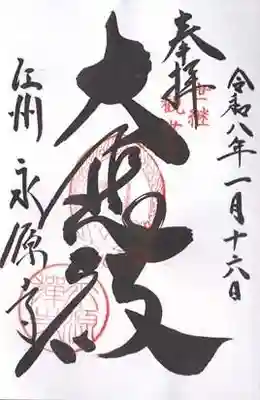 令和八年一月十六日
奉拝
大悲殿
江州 永源寺